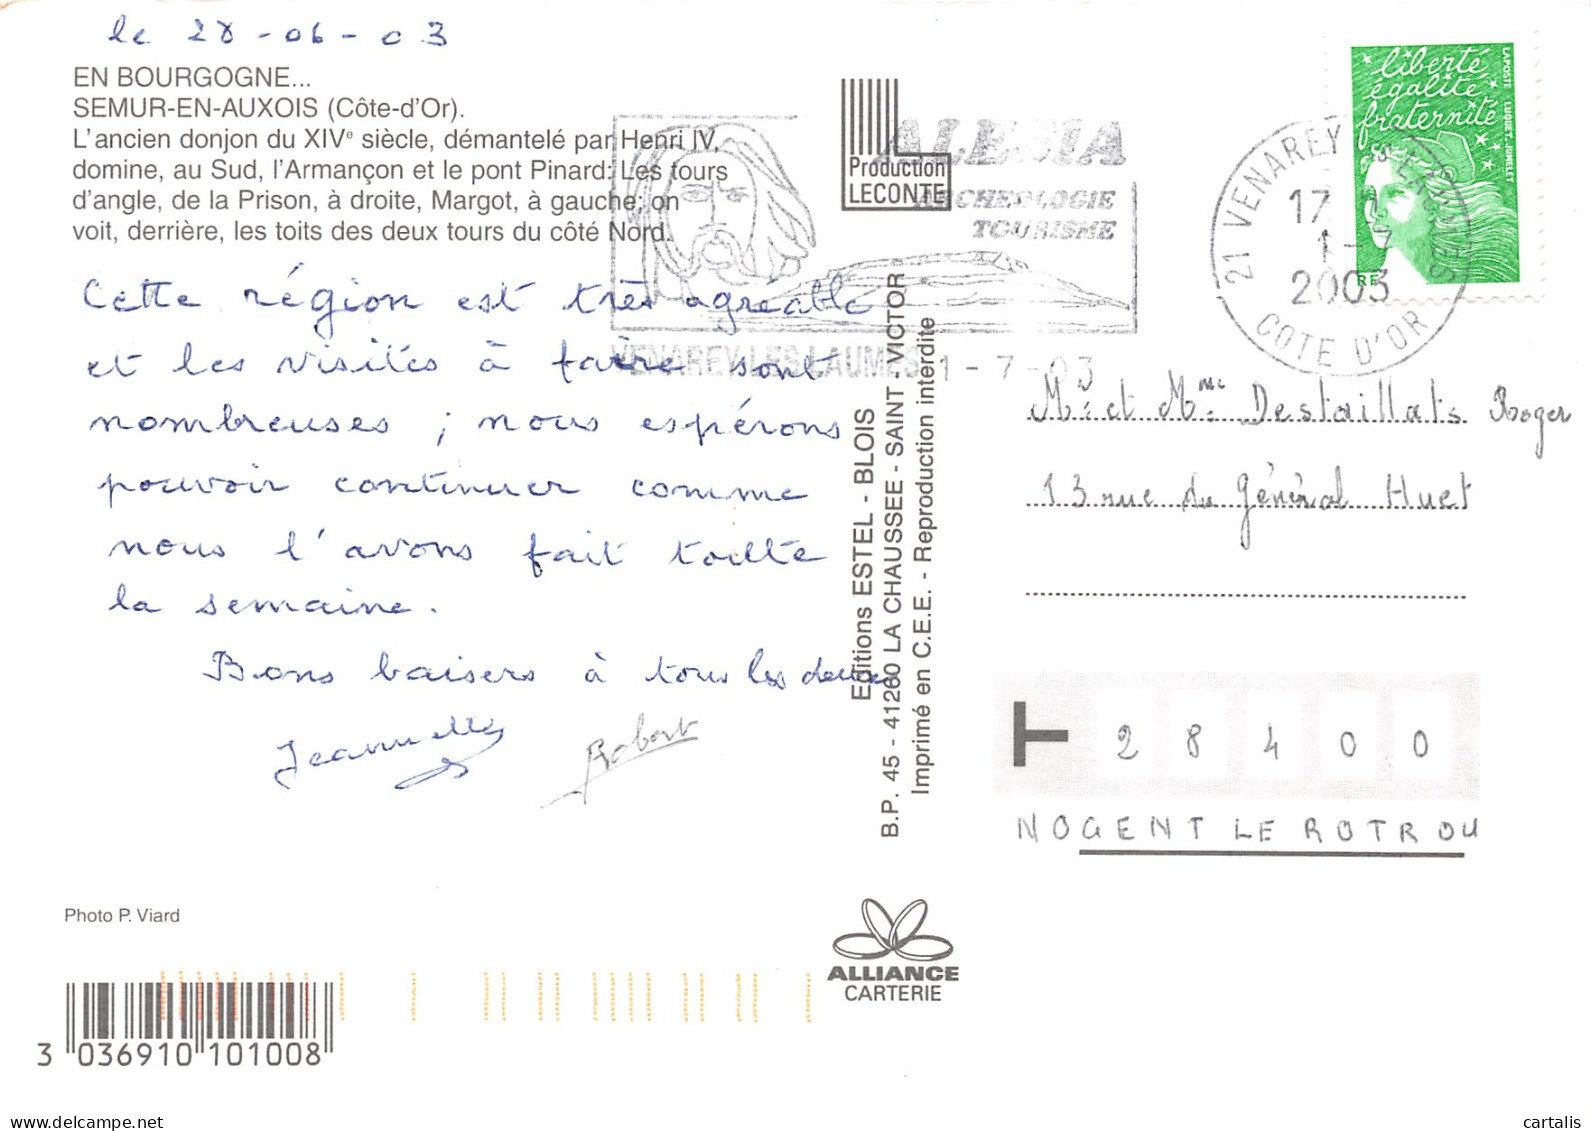 le 28-06-03
EN BOURGOGNE...
SEMUR-EN-AUXOIS (Côte-d'Or).
L'ancien donjon du XIVe siècle, démantelé par Henri IV,
domine, au Sud, l'Armançon et le pont Pinard: Les tours
d'angle, de la Prison, à droite, Margot, à gauche; on
voit, derrière, les toits des deux tours du côté Nord.
Cette région est très agreable
et les visites à faire sont
nombreuses ; nous espérons
pouvoir continuer comme
nous l'avons fait toute
la semaine.
Bons baisers à tous les deux
Jeannette
Robert
Photo P. Viard
3 036910 101008
Production
LECONTE
ALESIA
ARCHEOLOGIE
TOURISME
VENAREY-LES LAUMES 1-7-03
Editions ESTEL - BLOIS
B.P. 45 - 41260 LA CHAUSSEE - SAINT - VICTOR
Imprimé en C.E.E. - Reproduction interdite
ALLIANCE
CARTERIE
21 VENAREY LES LAUMES
17 H
1-7
2003
COTE D'OR
liberté
égalité
fraternité
LA POSTE LUQUET, JUMELET
RF
M. et Mme Destaillats Roger
13 rue du Général Huet
28400
NOGENT LE ROTROU
delcampe.net
cartalis